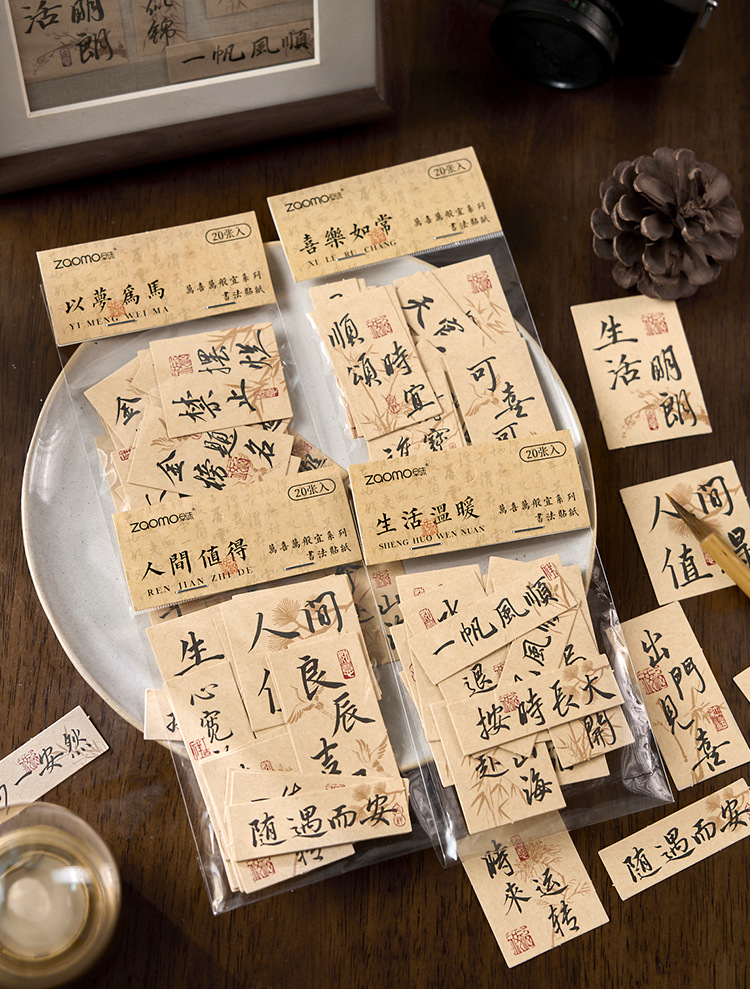 活明朗
一帆風順
zaomo
20张入
喜樂如常
XI LE RU CHANG
萬喜萬般宜系列
書法貼紙
zaomo
20张入
以夢爲馬
YI MENG WEI MA
萬喜萬般宜系列
書法貼紙
順頌時宜
可喜可
擺
禁止
金
金榜題名
生活明朗
zaomo
20张入
人間值得
REN JIAN ZHI DE
萬喜萬般宜系列
書法貼紙
zaomo
20张入
生活溫暖
SHENG HUO WEN NUAN
萬喜萬般宜系列
書法貼紙
人间
值
生心寬
人间
良辰吉
随遇而安
一帆風順
風順
退
按時長大
開
赴山海
出門見喜
一安然
時來运转
随遇而安